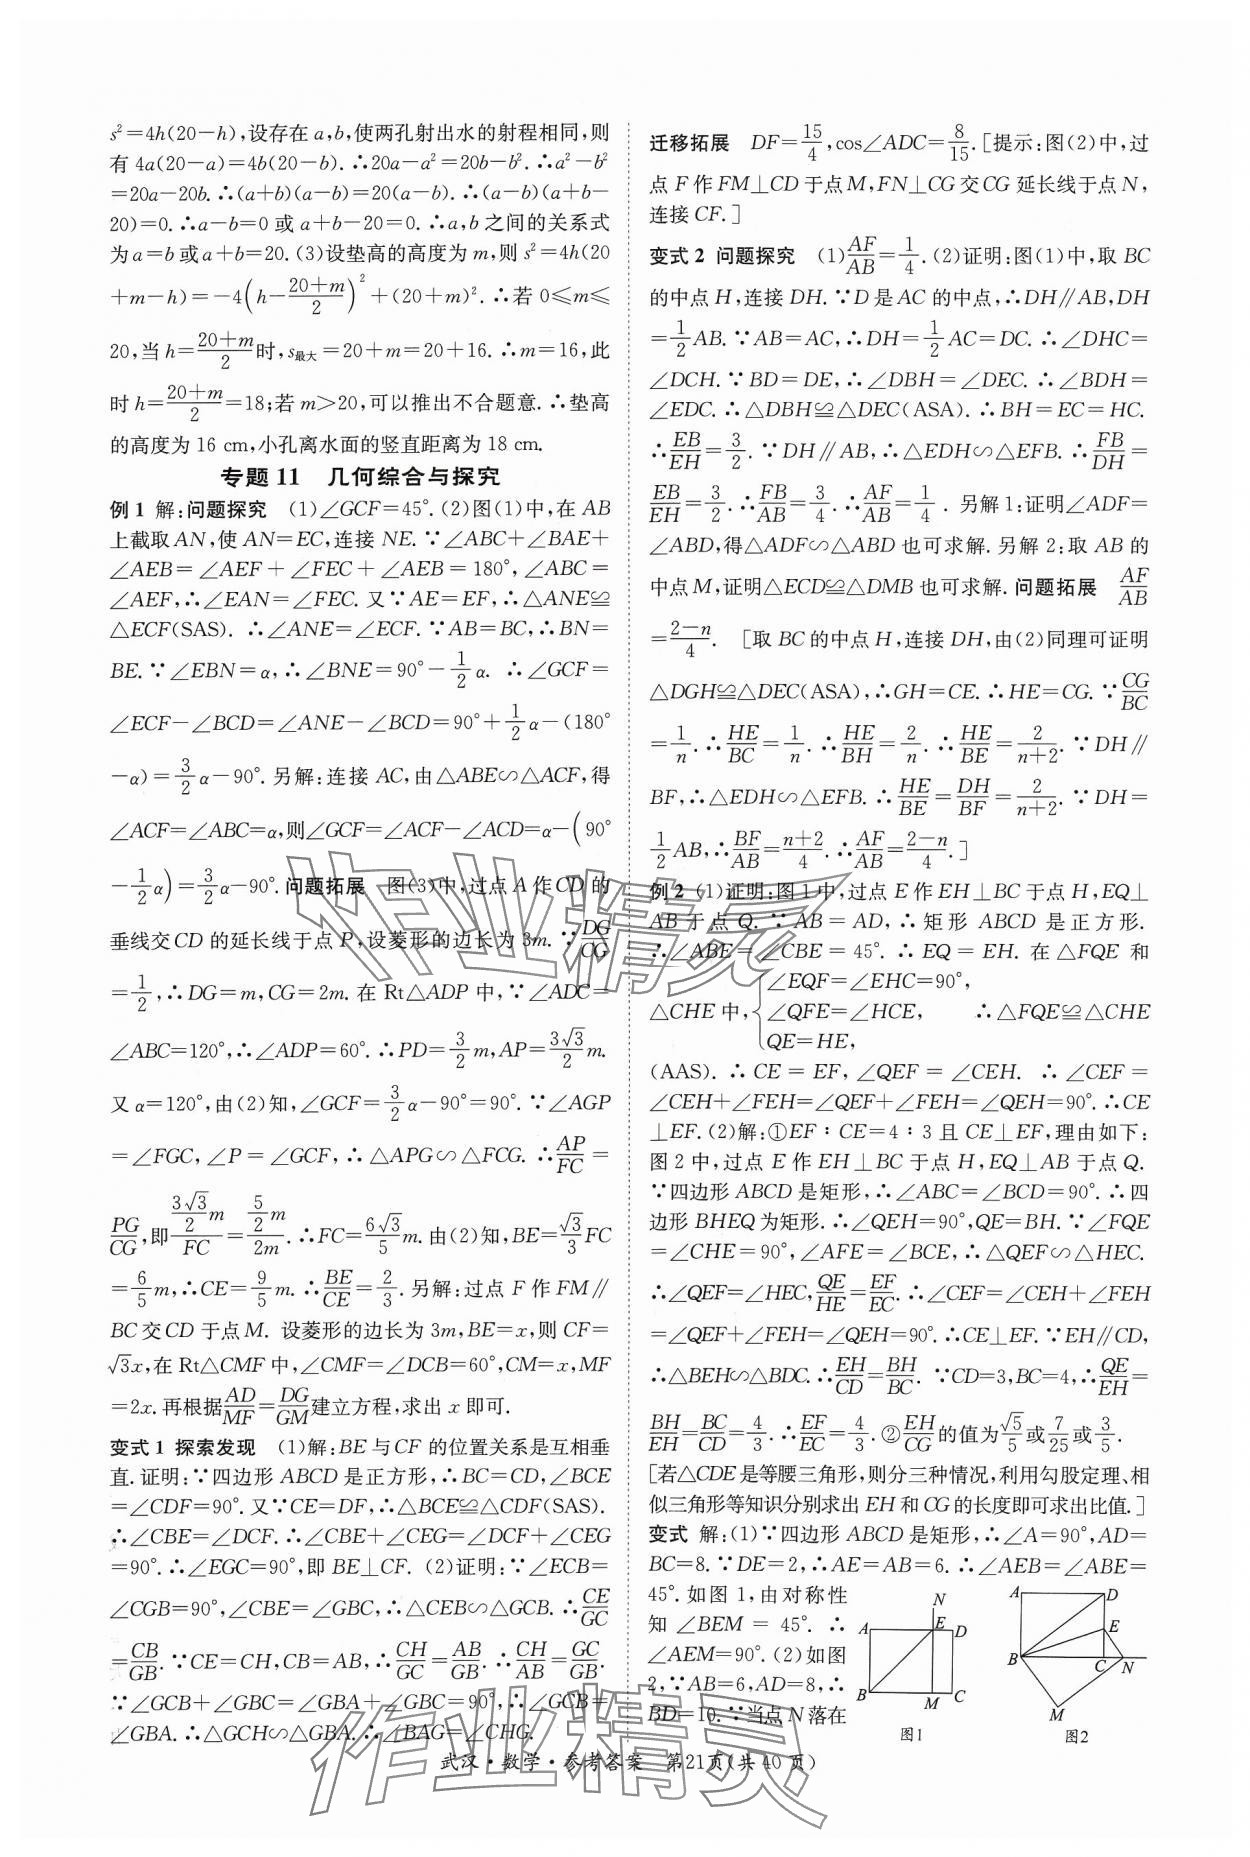 s²=4h(20-h),设存在 a,b,使两孔射出水的射程相同,则
有 4a(20-a)=4b(20-b). ∴20a-a²=20b-b². ∴a²-b²
=20a-20b. ∴(a+b)(a-b)=20(a-b). ∴(a-b)(a+b-
20)=0. ∴a-b=0 或 a+b-20=0. ∴a,b 之间的关系式
为 a=b 或 a+b=20. (3)设垫高的高度为 m,则 s²=4h(20
+m-h)=-4(h-(20+m)/2)²+(20+m)². ∴若 0≤m≤
20,当 h=(20+m)/2时,s最大=20+m=20+16. ∴m=16,此
时 h=(20+m)/2=18;若 m>20,可以推出不合题意. ∴垫高
的高度为 16 cm,小孔离水面的竖直距离为 18 cm.
专题 11 几何综合与探究
例 1 解:问题探究 (1)∠GCF=45°. (2)图(1)中,在 AB
上截取 AN,使 AN=EC,连接 NE. ∵∠ABC+∠BAE+
∠AEB=∠AEF+∠FEC+∠AEB=180°,∠ABC=
∠AEF,∴∠EAN=∠FEC. 又∵AE=EF,∴△ANE≌
△ECF(SAS). ∴∠ANE=∠ECF. ∵AB=BC,∴BN=
BE. ∵∠EBN=α,∴∠BNE=90°-1/2α. ∴∠GCF=
∠ECF-∠BCD=∠ANE-∠BCD=90°+1/2α-(180°
-α)=3/2α-90°. 另解:连接 AC,由△ABE∽△ACF,得
∠ACF=∠ABC=α,则∠GCF=∠ACF-∠ACD=α-(90°
-1/2α)=3/2α-90°. 问题拓展 图(3)中,过点 A 作 CD 的
垂线交 CD 的延长线于点 P,设菱形的边长为 3m. ∵DG/CG
=1/2,∴DG=m,CG=2m. 在 Rt△ADP 中,∵∠ADC=
∠ABC=120°,∴∠ADP=60°. ∴PD=3/2m,AP=3√3/2m.
又 α=120°,由(2)知,∠GCF=3/2α-90°=90°. ∵∠AGP
=∠FGC,∠P=∠GCF,∴△APG∽△FCG. ∴AP/FC=
PG/CG,即(3√3/2m)/FC=(5/2m)/2m. ∴FC=6√3/5m. 由(2)知,BE=√3/3FC
=6/5m,∴CE=9/5m. ∴BE/CE=2/3. 另解:过点 F 作 FM∥
BC 交 CD 于点 M. 设菱形的边长为 3m,BE=x,则 CF=
√3x,在 Rt△CMF 中,∠CMF=∠DCB=60°,CM=x,MF
=2x. 再根据AD/MF=DG/GM建立方程,求出 x 即可.
变式 1 探索发现 (1)解:BE 与 CF 的位置关系是互相垂
直. 证明:∵四边形 ABCD 是正方形,∴BC=CD,∠BCE
=∠CDF=90°. 又∵CE=DF,∴△BCE≌△CDF(SAS).
∴∠CBE=∠DCF. ∴∠CBE+∠CEG=∠DCF+∠CEG
=90°. ∴∠EGC=90°,即 BE⊥CF. (2)证明:∵∠ECB=
∠CGB=90°,∠CBE=∠GBC,∴△CEB∽△GCB. ∴CE/GC
=CB/GB. ∵CE=CH,CB=AB,∴CH/GC=AB/GB. ∴CH/AB=GC/GB.
∵∠GCB+∠GBC=∠GBA+∠GBC=90°,∴∠GCB=
∠GBA. ∴△GCH∽△GBA. ∴∠BAG=∠CHG.
迁移拓展 DF=15/4,cos∠ADC=8/15. [提示:图(2)中,过
点 F 作 FM⊥CD 于点 M,FN⊥CG 交 CG 延长线于点 N,
连接 CF.]
变式 2 问题探究 (1)AF/AB=1/4. (2)证明:图(1)中,取 BC
的中点 H,连接 DH. ∵D 是 AC 的中点,∴DH∥AB,DH
=1/2AB. ∵AB=AC,∴DH=1/2AC=DC. ∴∠DHC=
∠DCH. ∵BD=DE,∴∠DBH=∠DEC. ∴∠BDH=
∠EDC. ∴△DBH≌△DEC(ASA). ∴BH=EC=HC.
∴EB/EH=3/2. ∵DH∥AB,∴△EDH∽△EFB. ∴FB/DH=
EB/EH=3/2. ∴FB/AB=3/4. ∴AF/AB=1/4. 另解 1:证明∠ADF=
∠ABD,得△ADF∽△ABD 也可求解. 另解 2:取 AB 的
中点 M,证明△ECD≌△DMB 也可求解. 问题拓展 AF/AB
=(2-n)/4. [取 BC 的中点 H,连接 DH,由(2)同理可证明
△DGH≌△DEC(ASA),∴GH=CE. ∴HE=CG. ∵CG/BC
=1/n. ∴HE/BC=1/n. ∴HE/BH=2/n. ∴HE/BE=2/(n+2). ∵DH∥
BF,∴△EDH∽△EFB. ∴HE/BE=DH/BF=2/(n+2). ∵DH=
1/2AB,∴BF/AB=(n+2)/4. ∴AF/AB=(2-n)/4.]
例 2 (1)证明:图 1 中,过点 E 作 EH⊥BC 于点 H,EQ⊥
AB 于点 Q. ∵AB=AD,∴矩形 ABCD 是正方形.
∴∠ABE=∠CBE=45°. ∴EQ=EH. 在△FQE 和
△CHE 中,{∠EQF=∠EHC=90°,
∠QFE=∠HCE, ∴△FQE≌△CHE
QE=HE,
(AAS). ∴CE=EF,∠QEF=∠CEH. ∴∠CEF=
∠CEH+∠FEH=∠QEF+∠FEH=∠QEH=90°. ∴CE
⊥EF. (2)解:①EF∶CE=4∶3 且 CE⊥EF,理由如下:
图 2 中,过点 E 作 EH⊥BC 于点 H,EQ⊥AB 于点 Q.
∵四边形 ABCD 是矩形,∴∠ABC=∠BCD=90°. ∴四
边形 BHEQ 为矩形. ∴∠QEH=90°,QE=BH. ∵∠FQE
=∠CHE=90°,∠AFE=∠BCE,∴△QEF∽△HEC.
∴∠QEF=∠HEC,QE/HE=EF/EC. ∴∠CEF=∠CEH+∠FEH
=∠QEF+∠FEH=∠QEH=90°. ∴CE⊥EF. ∵EH∥CD,
∴△BEH∽△BDC. ∴EH/CD=BH/BC. ∵CD=3,BC=4,∴QE/EH=
BH/EH=BC/CD=4/3. ∴EF/EC=4/3. ②EH/CG的值为√5/5或7/25或3/5.
[若△CDE 是等腰三角形,则分三种情况,利用勾股定理、相
似三角形等知识分别求出 EH 和 CG 的长度即可求出比值.]
变式 解:(1)∵四边形 ABCD 是矩形,∴∠A=90°,AD=
BC=8. ∵DE=2,∴AE=AB=6. ∴∠AEB=∠ABE=
45°. 如图 1,由对称性
知∠BEM=45°. ∴
∠AEM=90°. (2)如图
2,∵AB=6,AD=8,∴
BD=10. ∵当点 N 落在
N
A E D
B M C
图1
A D
E
B C N
M
图2
武汉·数学·参考答案 第21页(共 40 页)
作业精灵
作业精灵